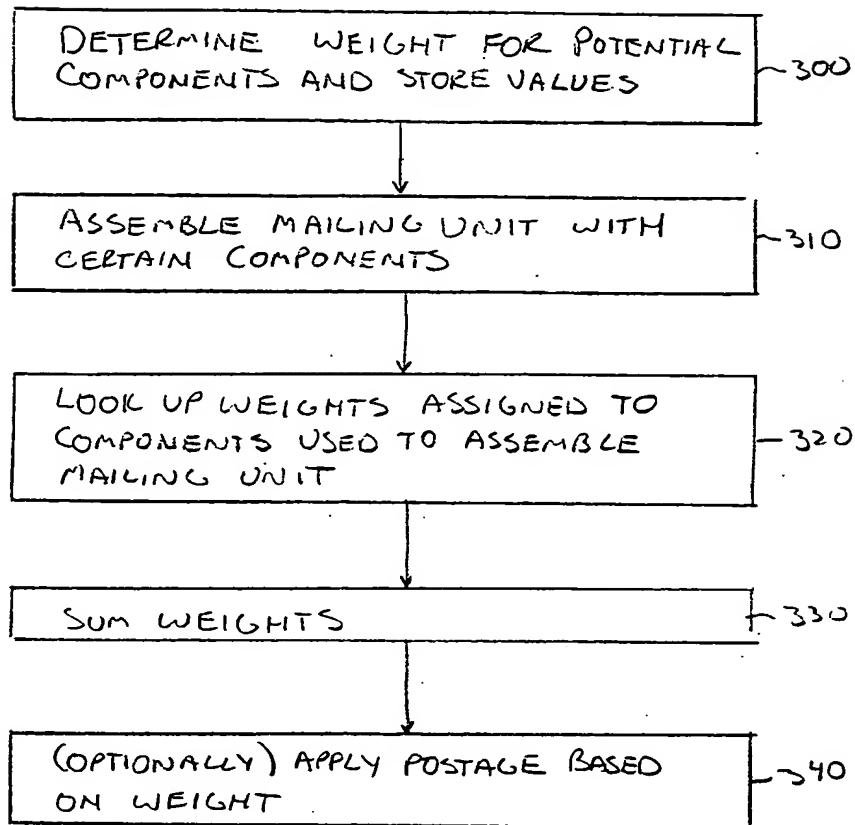 DETERMINE WEIGHT FOR POTENTIAL
COMPONENTS AND STORE VALUES
300
ASSEMBLE MAILING UNIT WITH
CERTAIN COMPONENTS
310
LOOK UP WEIGHTS ASSIGNED TO
COMPONENTS USED TO ASSEMBLE
MAILING UNIT
320
SUM WEIGHTS
330
(OPTIONALLY) APPLY POSTAGE BASED
ON WEIGHT
340